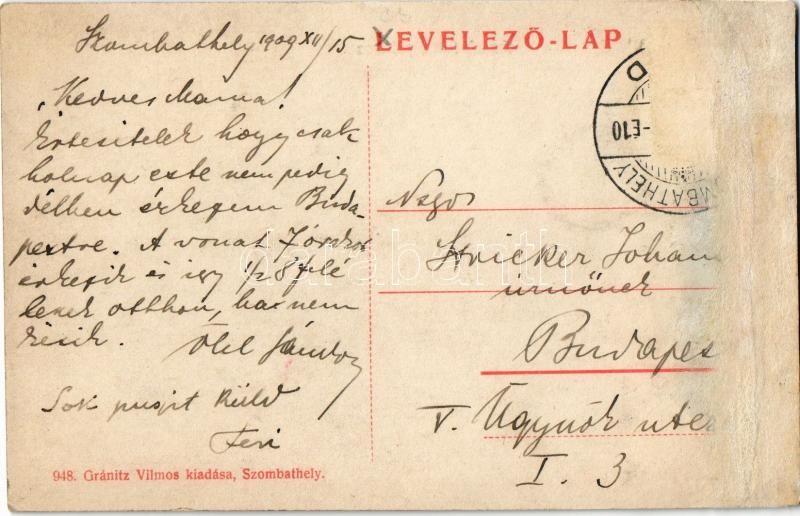 Szombathely 1909 XII/15
LEVELEZŐ-LAP
Kedves Mama!
Értesitelek hogy csak
holnap este nem pedig
délben érkezem Buda-
pestre. A vonat 7 órakor
érkezik és igy 1/2 8 felé
leszek otthon, ha nem
késik. Ölel Sándor
Sok puszit küld
Feri
Nagos
Stricker Johan
úrnőnek
Budapes
V. Ügynök utcza
I. 3
SZOMBATHELY
-E10
D
darabanth
948. Gránitz Vilmos kiadása, Szombathely.